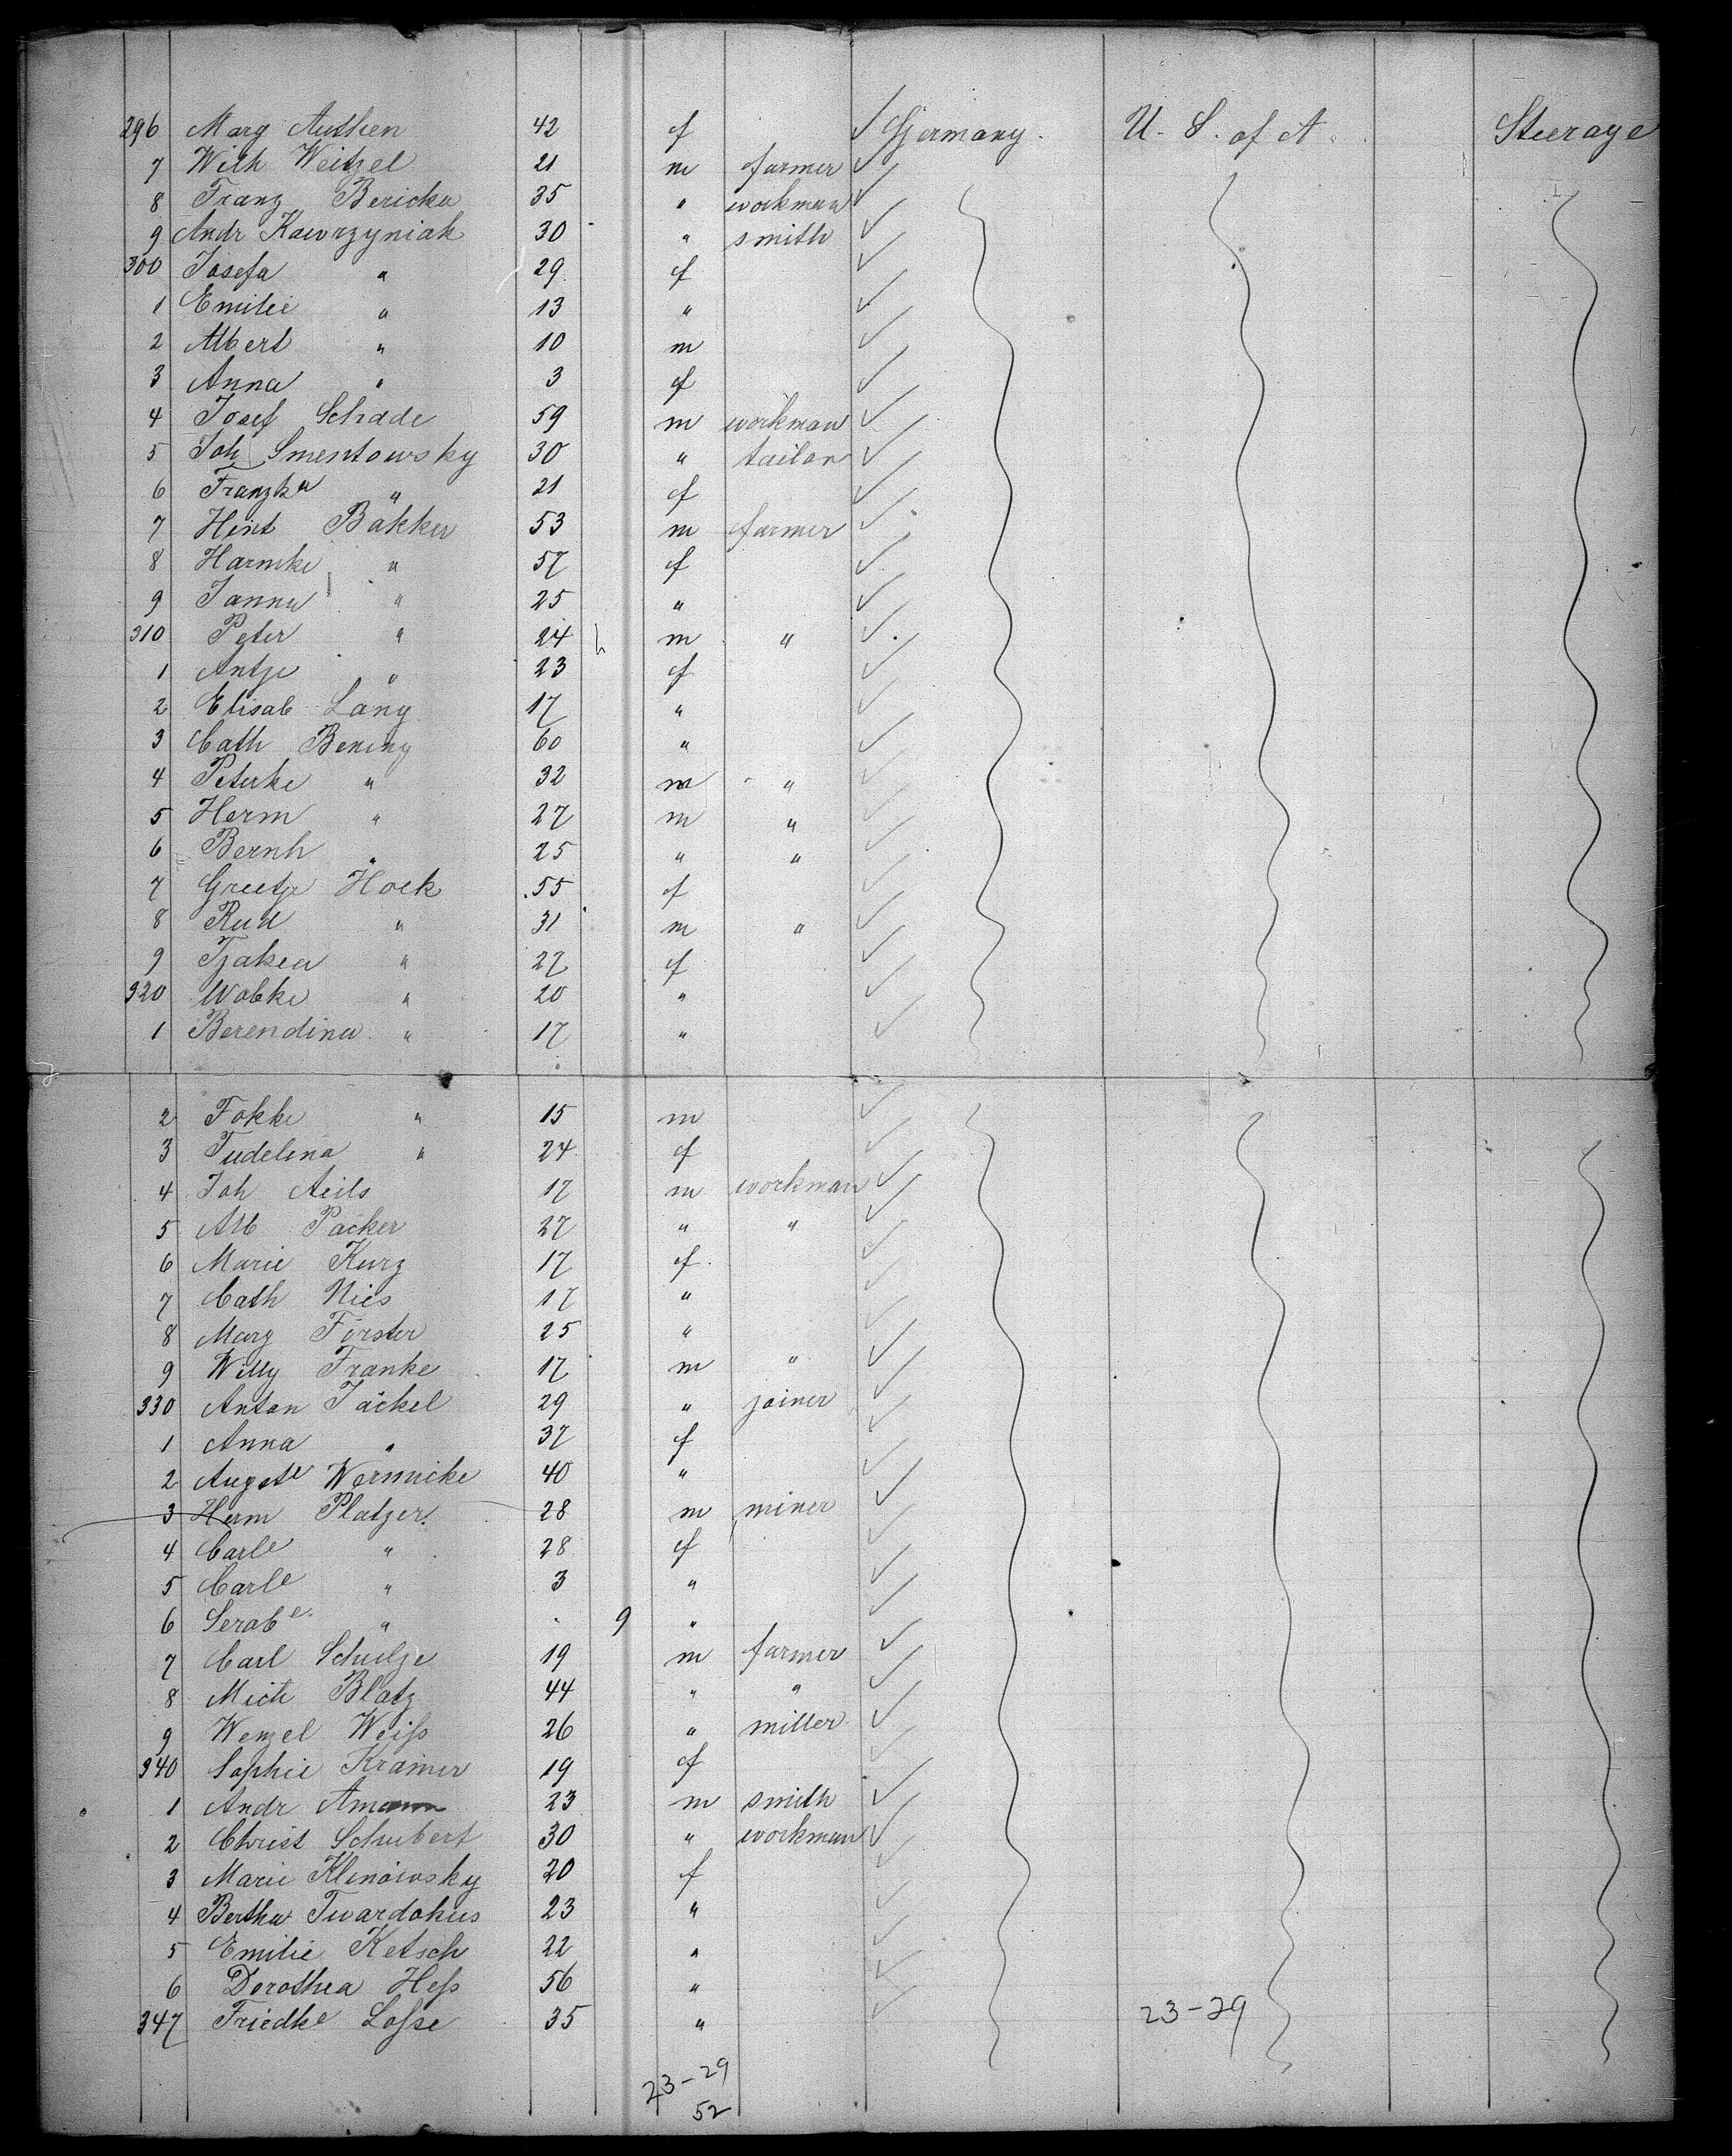 296 Marg Authen 42 f Germany. U. S. of A. Steerage
7 Wilh Weitzel 21 m farmer
8 Franz Bericka 35 " workman
9 Andr Kawrzyniak 30 " smith
300 Josefa " 29 f
1 Emilie " 13 "
2 Albert " 10 m
3 Anna " 3 f
4 Josef Schade 59 m workman
5 Joh Smentowsky 30 " tailor
6 Franzka " 21 f
7 Hint Bakker 53 m farmer
8 Harmke " 57 f
9 Janna " 25 "
310 Peter " 24 m "
1 Antje " 23 f
2 Elisab Lang 17 "
3 Cath Bening 60 "
4 Peterke " 32 m "
5 Herm " 27 m "
6 Bernh " 25 " "
7 Greetje Hoek 55 f
8 Rud " 31 m "
9 Tjakea " 27 f
320 Wobke " 20 "
1 Berendina " 17 "
2 Fokke " 15 m
3 Tudelina " 24 f
4 Joh Aeils 17 m workman
5 Alb Packer 27 " "
6 Marie Kurz 17 f
7 Cath Nies 17 "
8 Marg Förster 25 "
9 Willy Franke 17 m "
330 Anton Jäckel 29 " joiner
1 Anna " 37 f
2 Auguste Wermicke 40 "
3 Herm Platzer 28 m miner
4 Carle " 28 f
5 Carle " 3 "
6 " 9 "
7 Carl Schulze 19 m farmer
8 Mich Blatz 44 " "
9 Wenzel Weiſs 26 " miller
340 Sophie Kramer 19 f
1 Andr Amann 23 m smith
2 Christ Schubert 30 " workman
3 Marie Klinowsky 20 f
4 Bertha Twardokus 23 "
5 Emilie Ketsch 22 "
6 Dorothea Heſs 56 "
347 Friedke Loſse 35 "
23-29
23-29
52